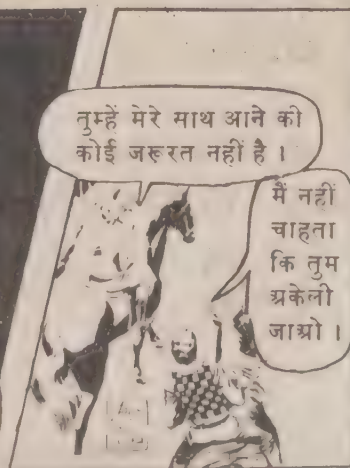 तुम्हें मेरे साथ आने की
कोई जरूरत नहीं है ।
मैं नहीं
चाहता
कि तुम
अकेली
जाओ ।